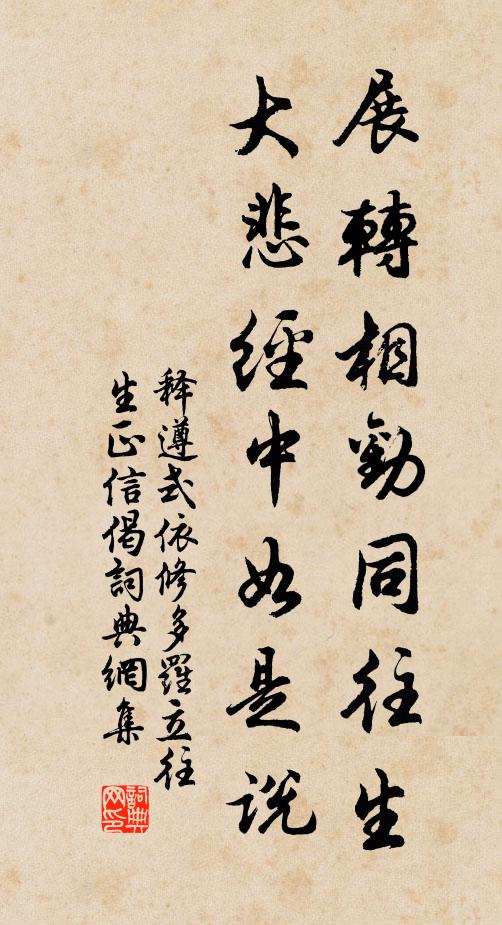 展轉相勸同往生
大悲經中如是說
释遵式依修多羅立往
生正信偈詞典網集
詞典
网印